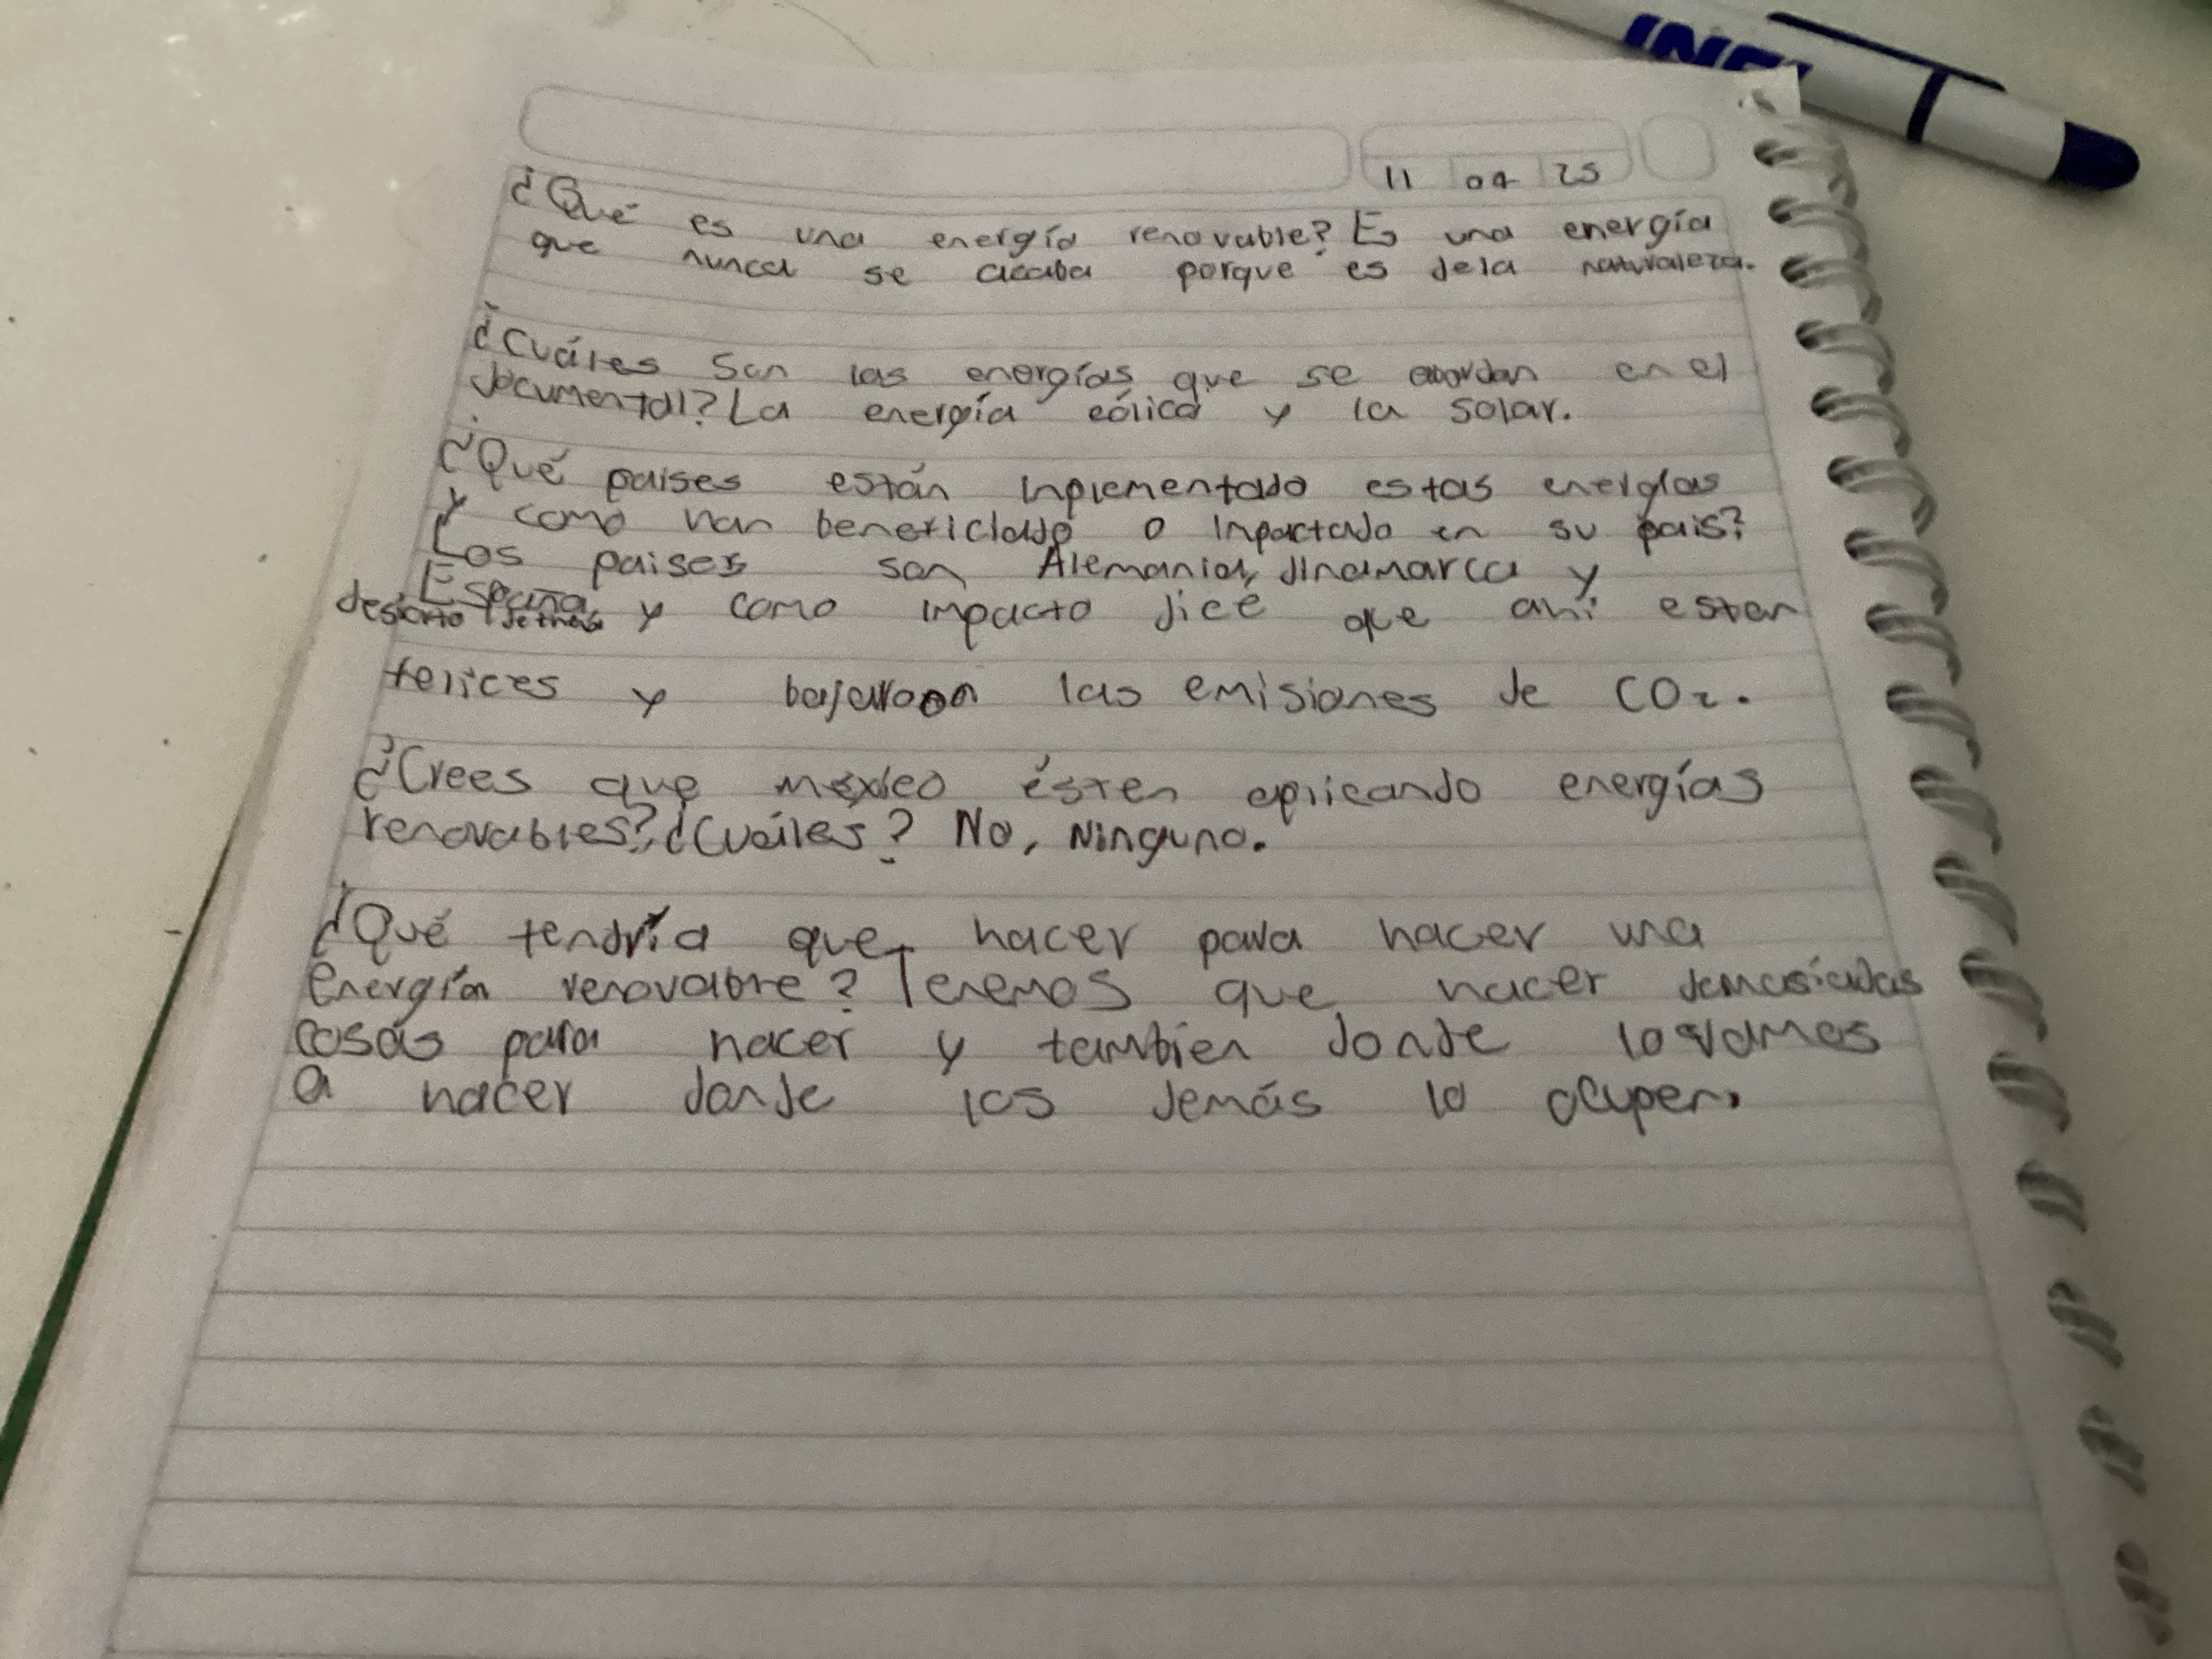 INE
11 04 25
¿Qué es una energía renovable? Es una energía
que nunca se acaba porque es dela naturaleza.
¿Cuáles son las energías que se abordan en el
documental? La energía eólica y la solar.
¿Qué paises están inplementado estas energías
y como han beneficiado o inpactado en su pais?
Los paises son Alemania, dinamarca y
España
y como impacto dice que ahí estan
felices y bajaron las emisiones de CO2.
¿Crees que méxico ésten aplicando energías
renovables? ¿Cuáles? No, Ninguno.
¿Qué tendría que hacer para hacer una
energía renovable? Tenemos que hacer demasiadas
cosas para hacer y tambien donde lo vamos
a hacer donde los demás lo ocupen.